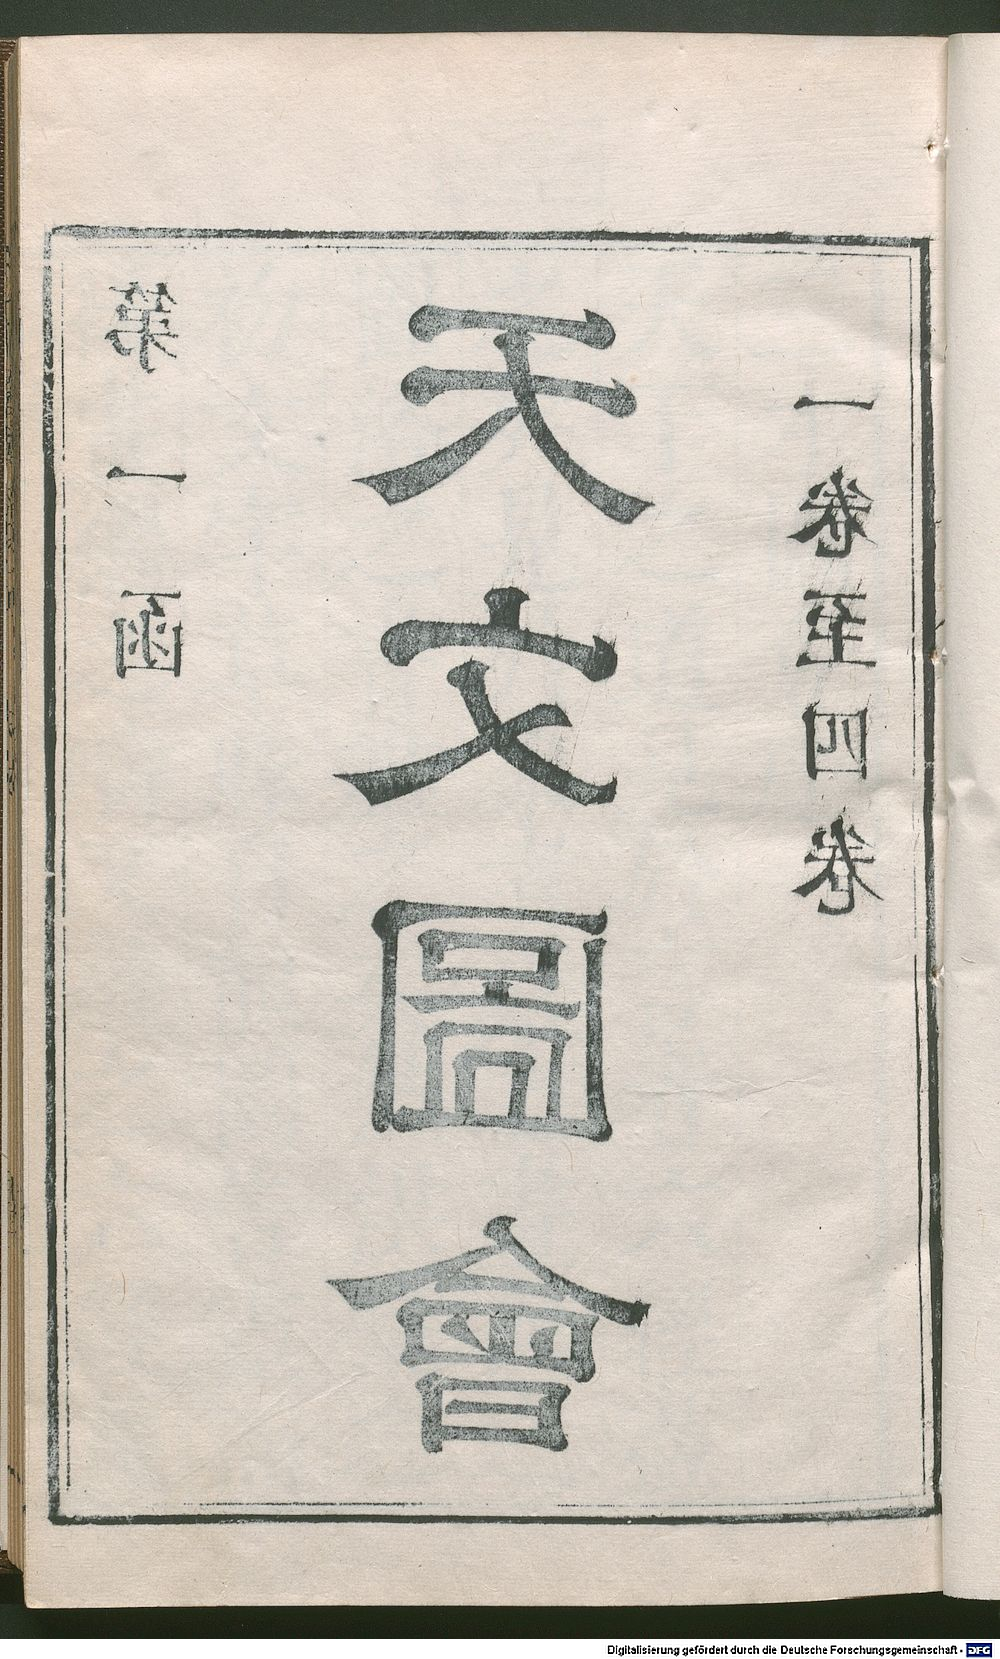 一卷至四卷
天文圖會
第一函
Digitalisierung gefördert durch die Deutsche Forschungsgemeinschaft - DFG